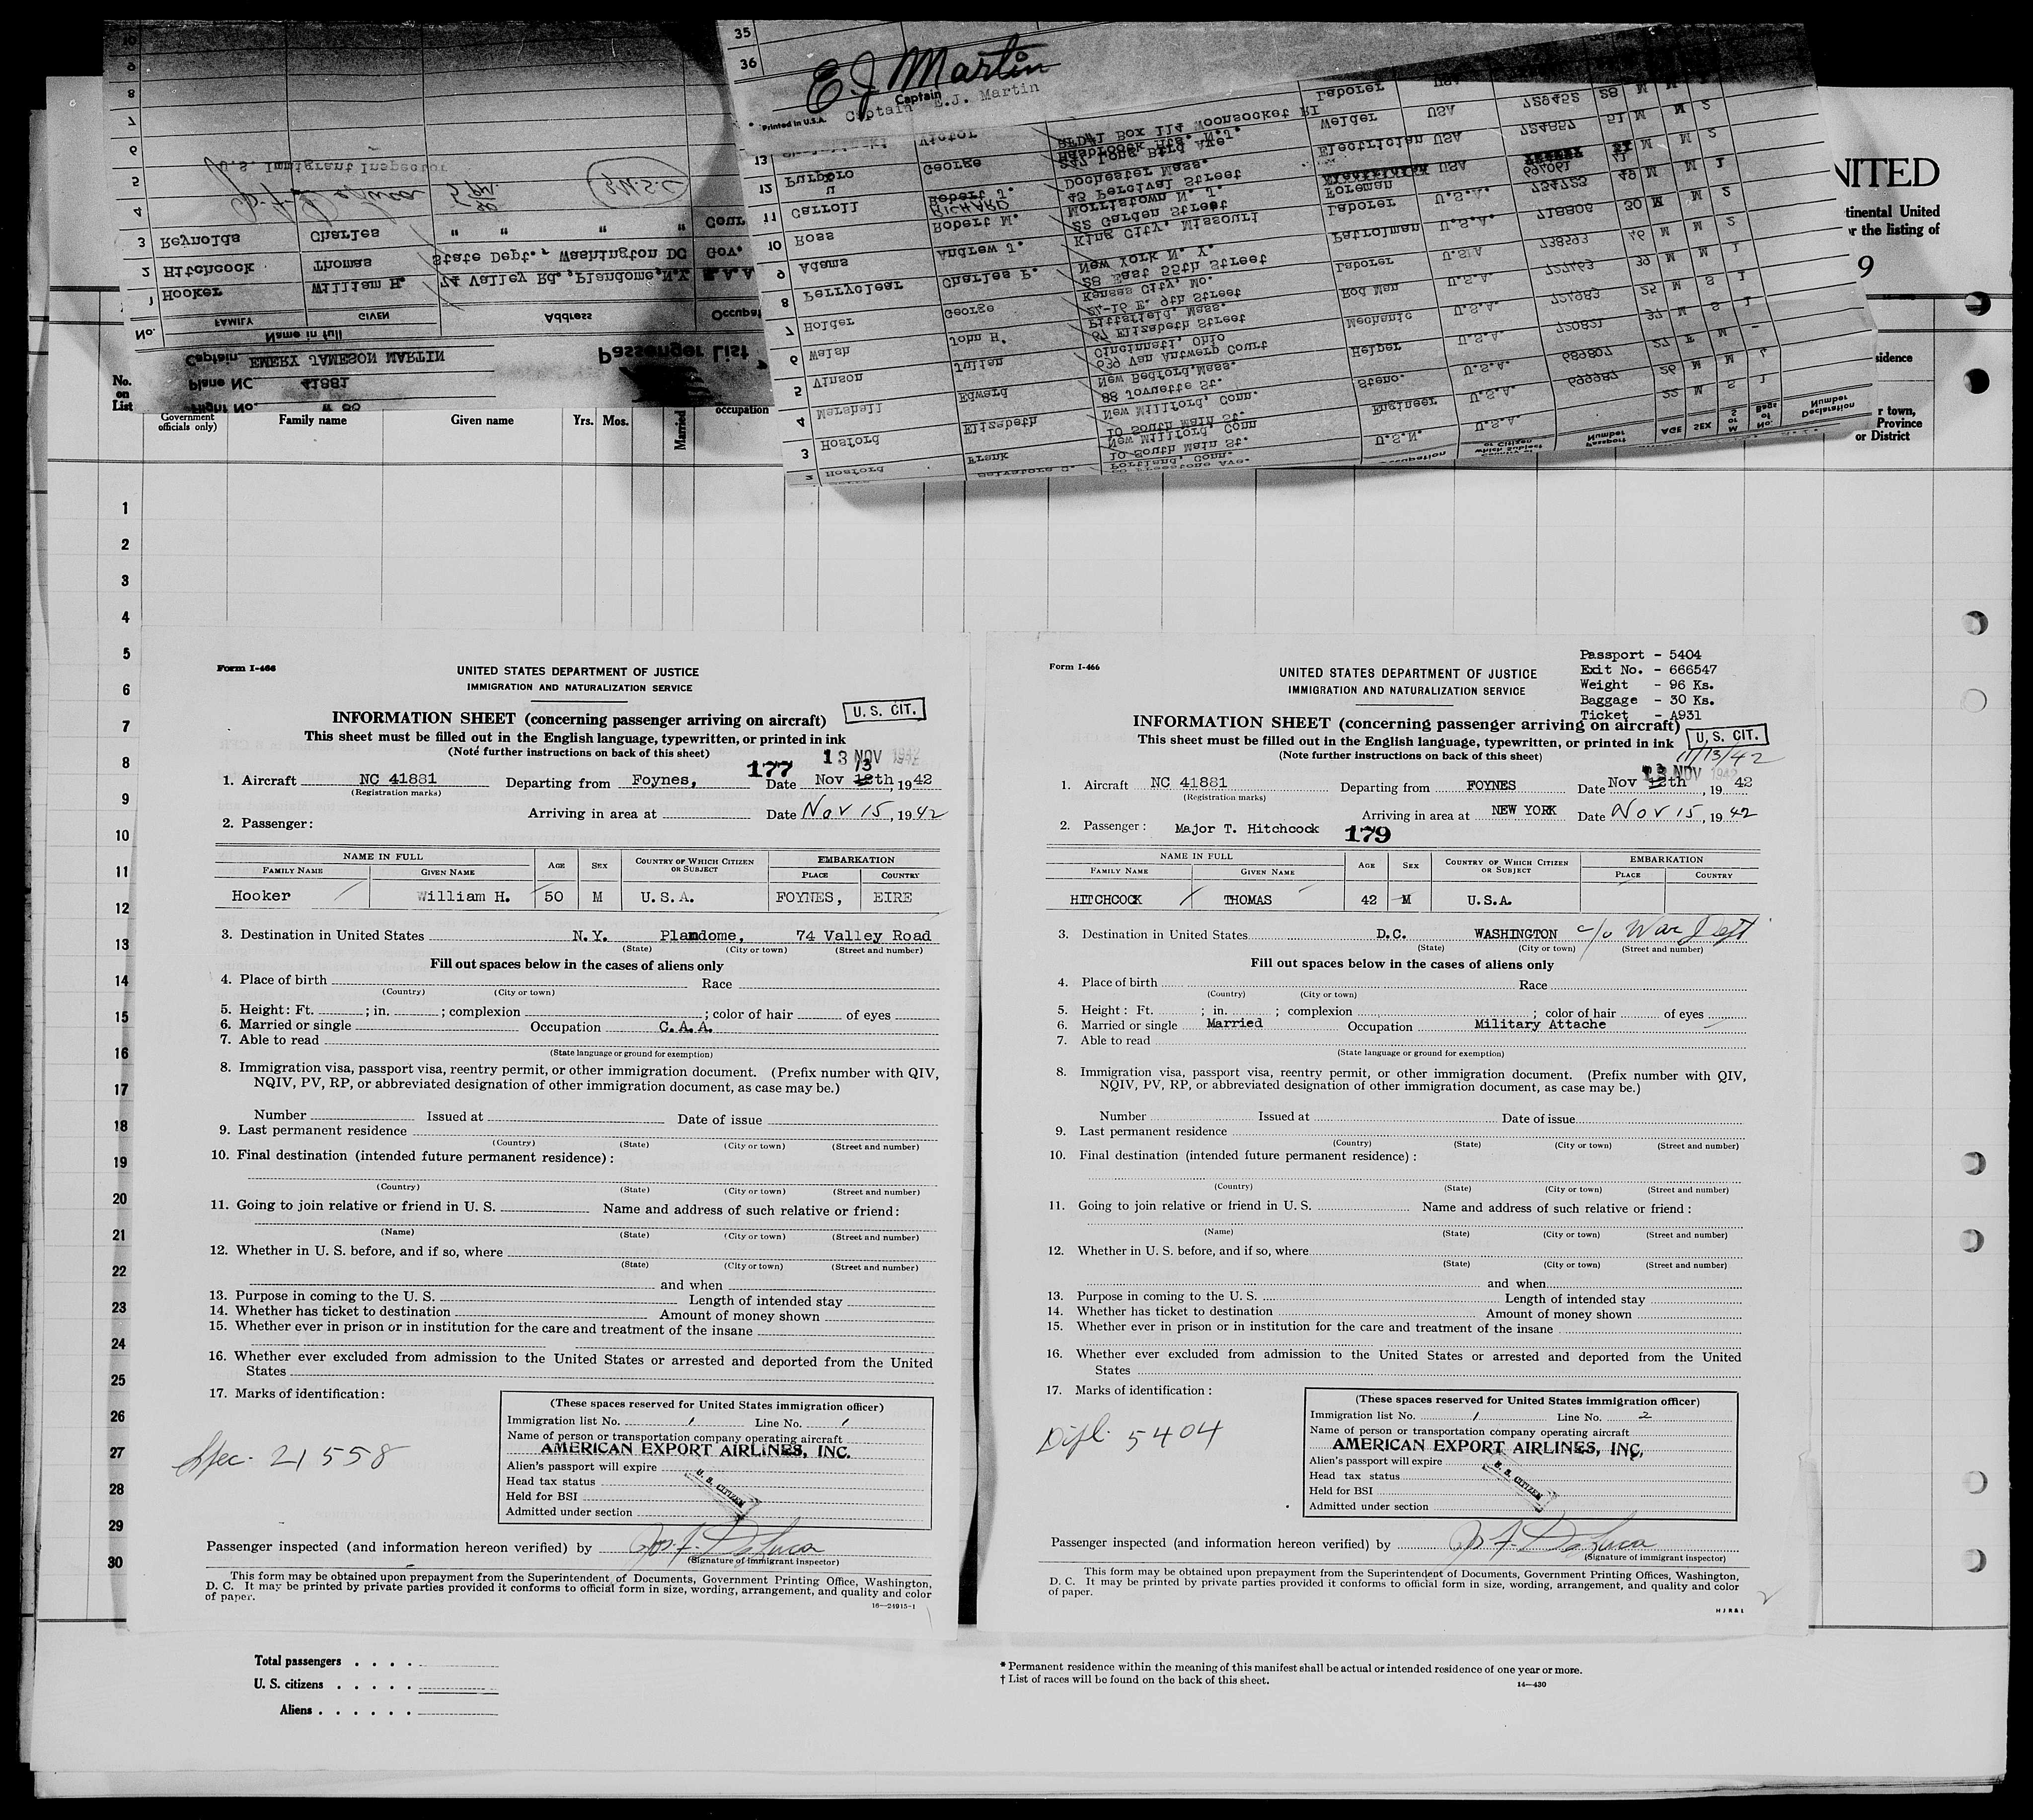 35
36
E J Martin
Captain
Captain E.J. Martin
* Printed in U.S.A.
13 Victor RFD#1 Box 114 Woonsocket RI Laborer USA 729452 28 M
Hasbroock Hts. N.J.
12 Purporo George 247 Long Bird Ave. Welder USA 724857 51 M M 2
u
Dochester Mass.
11 Carroll Robert J. 45 Percival Street Electrician USA 694061 41 M M 2
RICHARD
Morristown N. J.
10 Ross Robert M. 22 Garden Street Foreman U.S.A. 734723 49 M M 1
9 Adams Andrew J. King City, Missouri Laborer U.S.A. 718806 30 M M 2
New York N. Y.
8 Perryclear Charles P. 28 East 55th Street Patrolman U.S.A. 738593 46 M M 2
Kansas City, Mo.
7 Holder George 24-16 E. 9th Street Laborer U.S.A. 727463 39 M M 1
Pittsfield, Mass.
6 Walsh John H. 67 Elizabeth Street Rod Man U.S.A. 724983 25 M S 1
Cincinnati, Ohio
5 Vinson Julian 639 Van Antwerp Court Mechanic U.S.A. 720821 37 M S 1
New Bedford,Mass.
4 Marshall Edward 88 Jouvette St. Helper U.S.A. 689807 27 F M -
New Millford, Conn.
3 Hosford Elizabeth 10 South Main St. Steno. U.S.A. 699987 26 M M
New Millford, Conn
2 Hosford Frank 10 South Main St. Engineer U.S.A. 22 M S 1
Portland, Conn.
U.S.N.
Occupation
which Subject
or Citizen
Passport
Number
AGE
SEX
M or S
No. of Bags
Declaration
Number
10
9
8
7
6
5
4
U.S. Immigrant Inspector
3 Reynolds Charles " " " " Cour
2 Hitchcock Thomas State Dept., Washington DC Gov.
1 Hooker William H. 74 Valley Rd.,Plandome,N.Y. C.A.A
No. FAMILY GIVEN Address Occupat
Name in full
Captain EMERY JAMESON MARTIN
Passenger List
Plane NC 41881
Flight No. W 80
NITED
tinental United
r the listing of
9
sidence
r town,
Province
or District
No.
on
List
Government
officials only)
Family name
Given name
Yrs. Mos.
Married
occupation
1
2
3
4
5
6
7
8
9
10
11
12
13
14
15
16
17
18
19
20
21
22
23
24
25
26
27
28
29
30
Form I-466
UNITED STATES DEPARTMENT OF JUSTICE
IMMIGRATION AND NATURALIZATION SERVICE
U. S. CIT.
INFORMATION SHEET (concerning passenger arriving on aircraft)
This sheet must be filled out in the English language, typewritten, or printed in ink
(Note further instructions on back of this sheet)
13 NOV 1942
177
13
1. Aircraft NC 41881 Departing from Foynes, Date Nov 12th, 1942
(Registration marks)
Arriving in area at Date Nov 15, 1942
2. Passenger:
NAME IN FULL AGE SEX COUNTRY OF WHICH CITIZEN OR SUBJECT EMBARKATION
FAMILY NAME GIVEN NAME PLACE COUNTRY
Hooker William H. 50 M U.S.A. FOYNES, EIRE
3. Destination in United States N.Y. Plandome, 74 Valley Road
(State) (City or town) (Street and number)
Fill out spaces below in the cases of aliens only
4. Place of birth Race
(Country) (City or town)
5. Height: Ft. ; in. ; complexion ; color of hair of eyes
6. Married or single Occupation C.A.A.
7. Able to read
(State language or ground for exemption)
8. Immigration visa, passport visa, reentry permit, or other immigration document. (Prefix number with QIV,
NQIV, PV, RP, or abbreviated designation of other immigration document, as case may be.)
Number Issued at Date of issue
9. Last permanent residence
(Country) (State) (City or town) (Street and number)
10. Final destination (intended future permanent residence):
(Country) (State) (City or town) (Street and number)
11. Going to join relative or friend in U. S. Name and address of such relative or friend:
(Name) (State) (City or town) (Street and number)
12. Whether in U. S. before, and if so, where
(State) (City or town) (Street and number)
and when
13. Purpose in coming to the U. S. Length of intended stay
14. Whether has ticket to destination Amount of money shown
15. Whether ever in prison or in institution for the care and treatment of the insane
16. Whether ever excluded from admission to the United States or arrested and deported from the United
States
17. Marks of identification:
(These spaces reserved for United States immigration officer)
Immigration list No. 1 Line No. 1
Name of person or transportation company operating aircraft
AMERICAN EXPORT AIRLINES, INC.
Alien's passport will expire
Head tax status
Held for BSI
Admitted under section
U. S. CITIZEN
Spec. 21558
Passenger inspected (and information hereon verified) by
(Signature of immigrant inspector)
This form may be obtained upon prepayment from the Superintendent of Documents, Government Printing Office, Washington,
D. C. It may be printed by private parties provided it conforms to official form in size, wording, arrangement, and quality and color
of paper.
16—24915-1
Form I-466
Passport - 5404
Exit No. - 666547
Weight - 96 Ks.
Baggage - 30 Ks.
Ticket - A931
UNITED STATES DEPARTMENT OF JUSTICE
IMMIGRATION AND NATURALIZATION SERVICE
INFORMATION SHEET (concerning passenger arriving on aircraft)
This sheet must be filled out in the English language, typewritten, or printed in ink
U. S. CIT.
(Note further instructions on back of this sheet)
11/13/42
13 NOV 1942
1. Aircraft NC 41881 Departing from FOYNES Date Nov 12th, 1942
(Registration marks)
Arriving in area at NEW YORK Date Nov 15, 1942
2. Passenger: Major T. Hitchcock 179
NAME IN FULL AGE SEX COUNTRY OF WHICH CITIZEN OR SUBJECT EMBARKATION
FAMILY NAME GIVEN NAME PLACE COUNTRY
HITCHCOCK THOMAS 42 M U.S.A.
3. Destination in United States D.C. WASHINGTON c/o War Dept
(State) (City or town) (Street and number)
Fill out spaces below in the cases of aliens only
4. Place of birth Race
(Country) (City or town)
5. Height: Ft. ; in. ; complexion ; color of hair of eyes
6. Married or single Married Occupation Military Attache
7. Able to read
(State language or ground for exemption)
8. Immigration visa, passport visa, reentry permit, or other immigration document. (Prefix number with QIV,
NQIV, PV, RP, or abbreviated designation of other immigration document, as case may be.)
Number Issued at Date of issue
9. Last permanent residence
(Country) (State) (City or town) (Street and number)
10. Final destination (intended future permanent residence):
(Country) (State) (City or town) (Street and number)
11. Going to join relative or friend in U. S. Name and address of such relative or friend:
(Name) (State) (City or town) (Street and number)
12. Whether in U. S. before, and if so, where
(State) (City or town) (Street and number)
and when
13. Purpose in coming to the U. S. Length of intended stay
14. Whether has ticket to destination Amount of money shown
15. Whether ever in prison or in institution for the care and treatment of the insane
16. Whether ever excluded from admission to the United States or arrested and deported from the United
States
17. Marks of identification:
(These spaces reserved for United States immigration officer)
Immigration list No. 1 Line No. 2
Name of person or transportation company operating aircraft
AMERICAN EXPORT AIRLINES, INC.
Alien's passport will expire
Head tax status
Held for BSI
Admitted under section
U. S. CITIZEN
Dipl. 5404
Passenger inspected (and information hereon verified) by
(Signature of immigrant inspector)
This form may be obtained upon prepayment from the Superintendent of Documents, Government Printing Offices, Washington,
D. C. It may be printed by private parties provided it conforms to official form in size, wording, arrangement, and quality and color
of paper.
H J R & L
2
Total passengers . . . .
U. S. citizens . . . . .
Aliens . . . . . .
* Permanent residence within the meaning of this manifest shall be actual or intended residence of one year or more.
† List of races will be found on the back of this sheet.
14—430